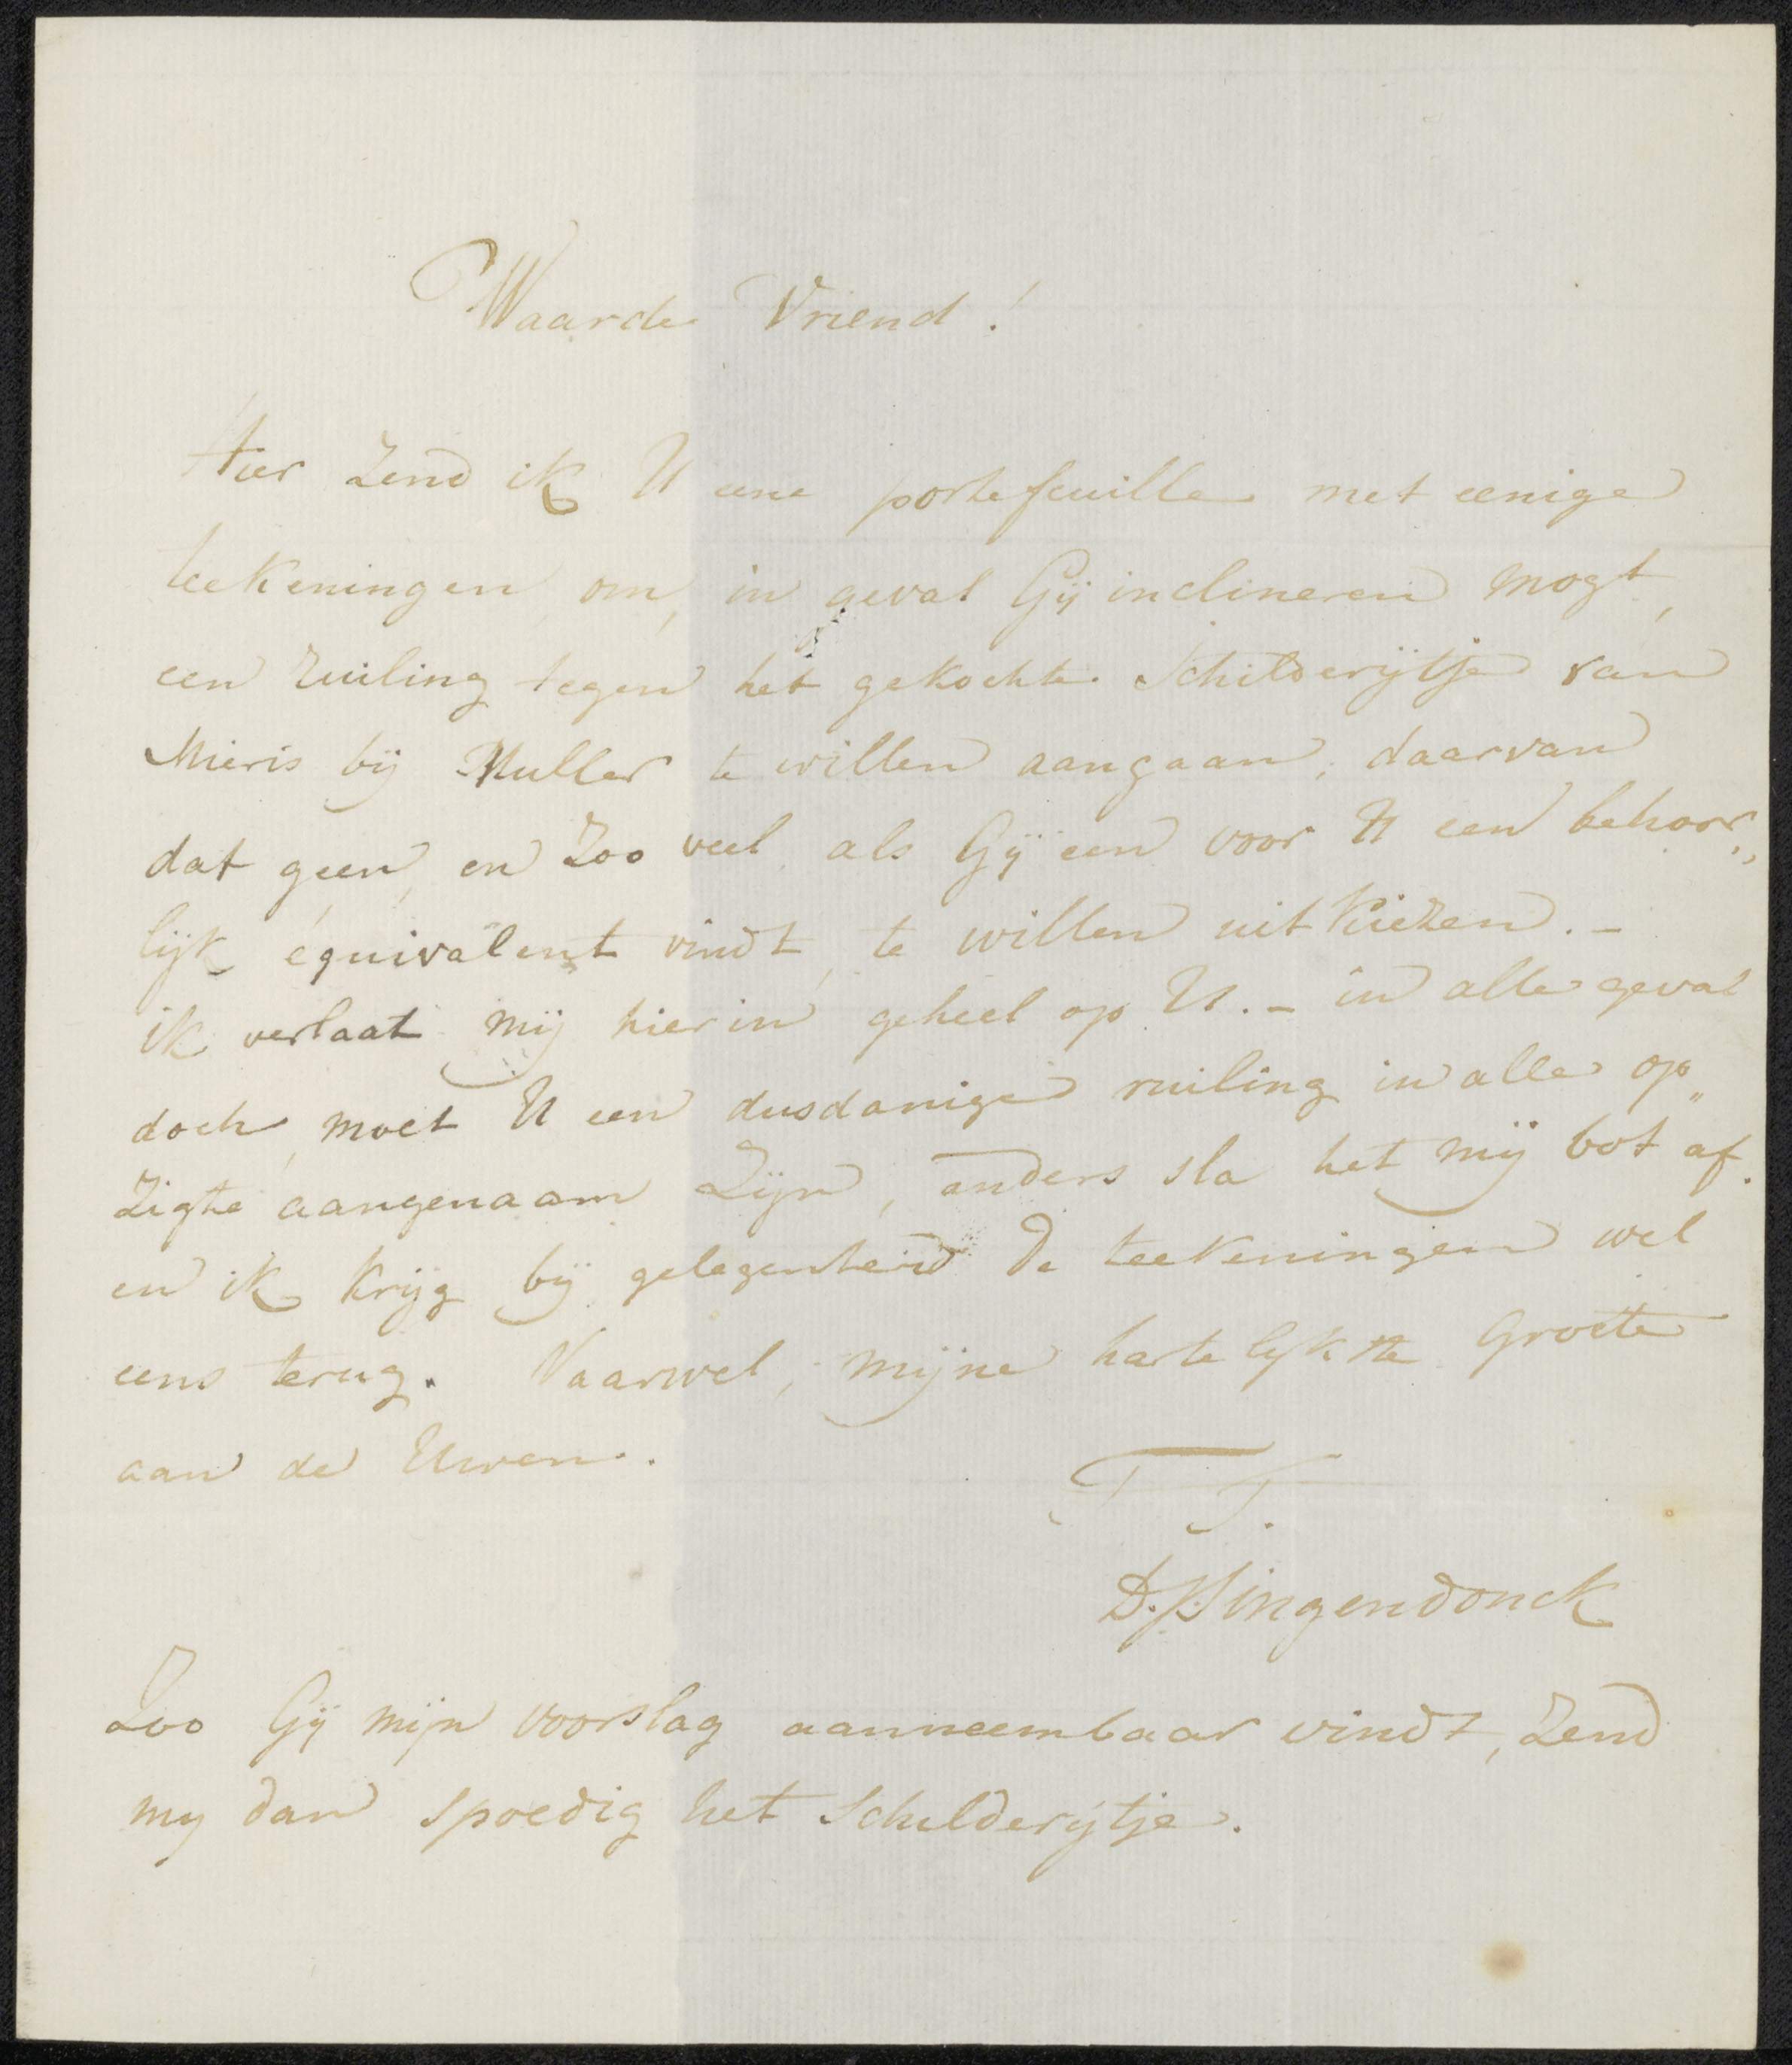 Waarde Vriend!
Hier zend ik U eene portefeuille met eenige
teekeningen, om, in geval Gij inclineren mogt,
een ruiling tegen het gekochte Schilderijtje van
Mieris bij Muller te willen aangaan, daarvan
dat geen, en zoo veel, als Gij een voor U een behoor„
lijk équivalent vindt, te willen uitkiezen. –
ik verlaat mij hierin geheel op U. – in alle geval
doch, moet U een dusdanige ruiling in alle op„
zigte aangenaam zijn, anders sla het mij bot af.
en ik krijg bij gelegenheid de teekeningen wel
eens terug. Vaarwel, mijne hartelykste Groete
aan de Uwen.
TT.
D. Singendonck
Zoo Gij mijn voorslag aanneembaar vindt, zend
my dan spoedig het Schilderijtje.